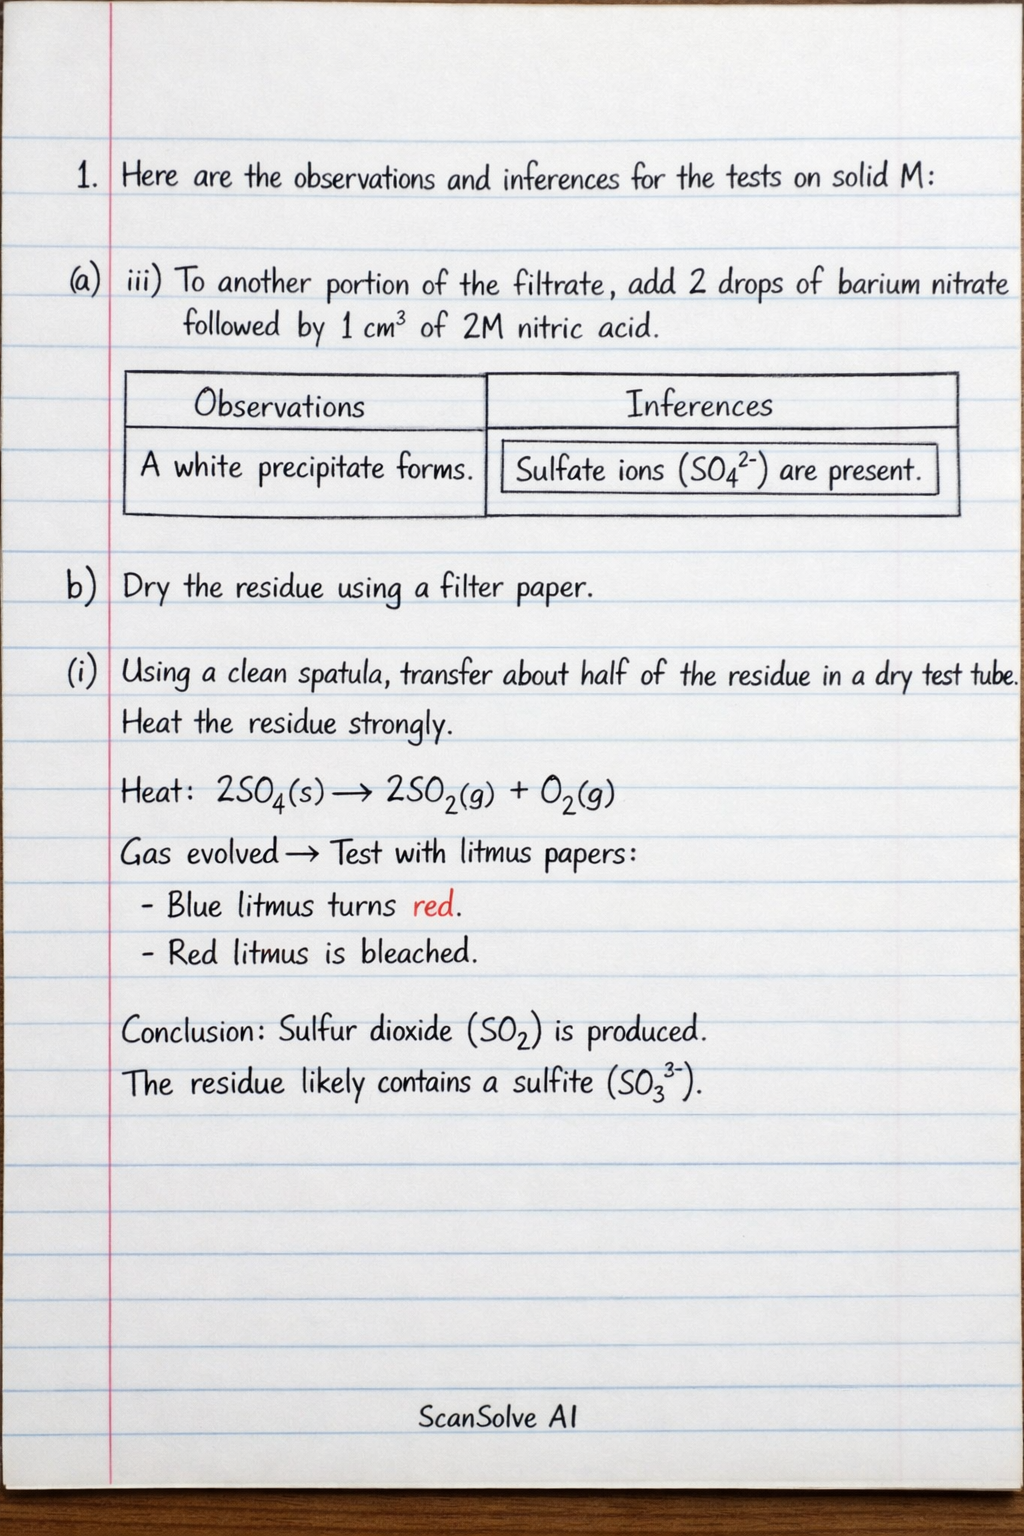 1. Here are the observations and inferences for the tests on solid M:
(a) iii) To another portion of the filtrate, add 2 drops of barium nitrate
followed by 1 cm³ of 2M nitric acid.
Observations Inferences
A white precipitate forms. Sulfate ions (SO₄²⁻) are present.
b) Dry the residue using a filter paper.
(i) Using a clean spatula, transfer about half of the residue in a dry test tube.
Heat the residue strongly.
Heat: 2SO₄(s) → 2SO₂(g) + O₂(g)
Gas evolved → Test with litmus papers:
- Blue litmus turns red.
- Red litmus is bleached.
Conclusion: Sulfur dioxide (SO₂) is produced.
The residue likely contains a sulfite (SO₃³⁻).
ScanSolve AI